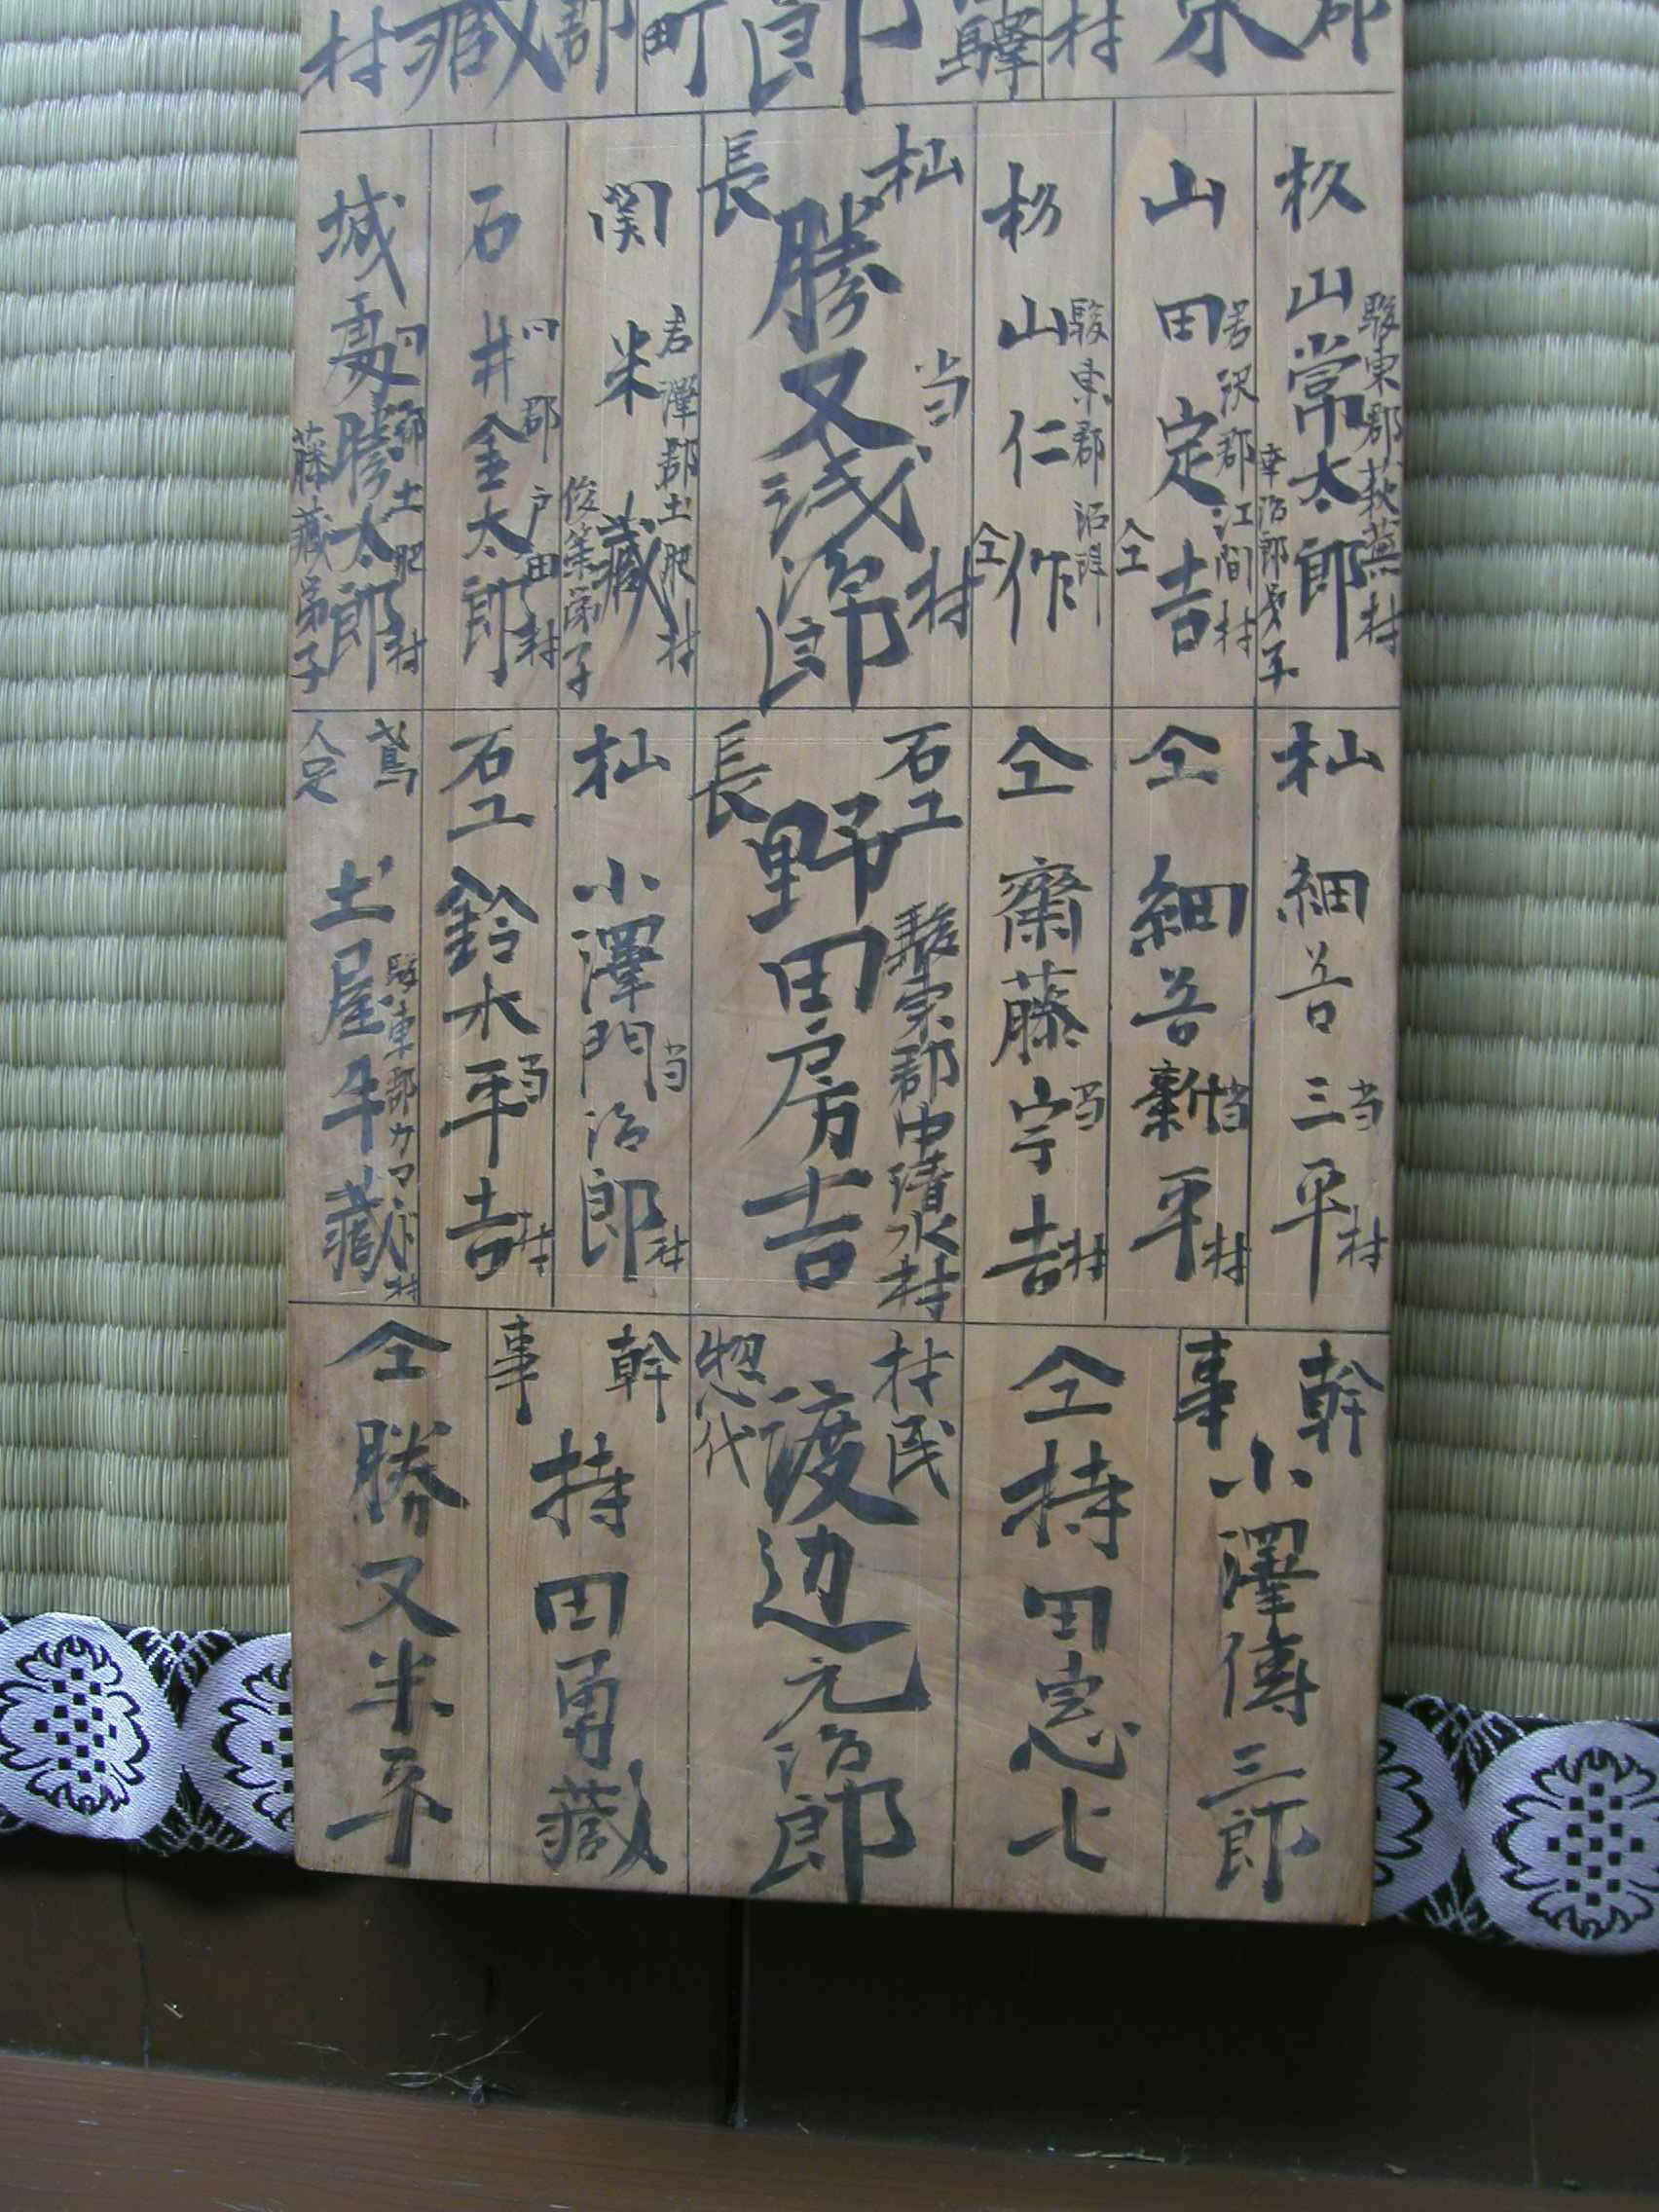 郡
村
驛
郎
町
郡
藏
村
駿東郡萩蕪村
杦山常太郎
幸治郎弟子
君沢郡江間村
山田定吉
仝
駿東郡沼津
杦山仁作
仝
杣長
当村
勝又浅次郎
君澤郡土肥村
関米藏
俊策弟子
同郡戸田村
石井金太郎
同郡土肥村
城所勝太郎
藤藏弟子
杣
細谷三平
当村
仝
細谷新平
当村
仝
齋藤宗吉
当村
石工長
駿東郡中清水村
野田房吉
杣
小澤門治郎
当村
石工
鈴木平吉
当村
鳶人足
駿東郡カマド村
土屋牛藏
幹事
小澤傳三郎
仝
持田忠七
村民惣代
渡辺元治郎
幹事
持田勇藏
仝
勝又半平